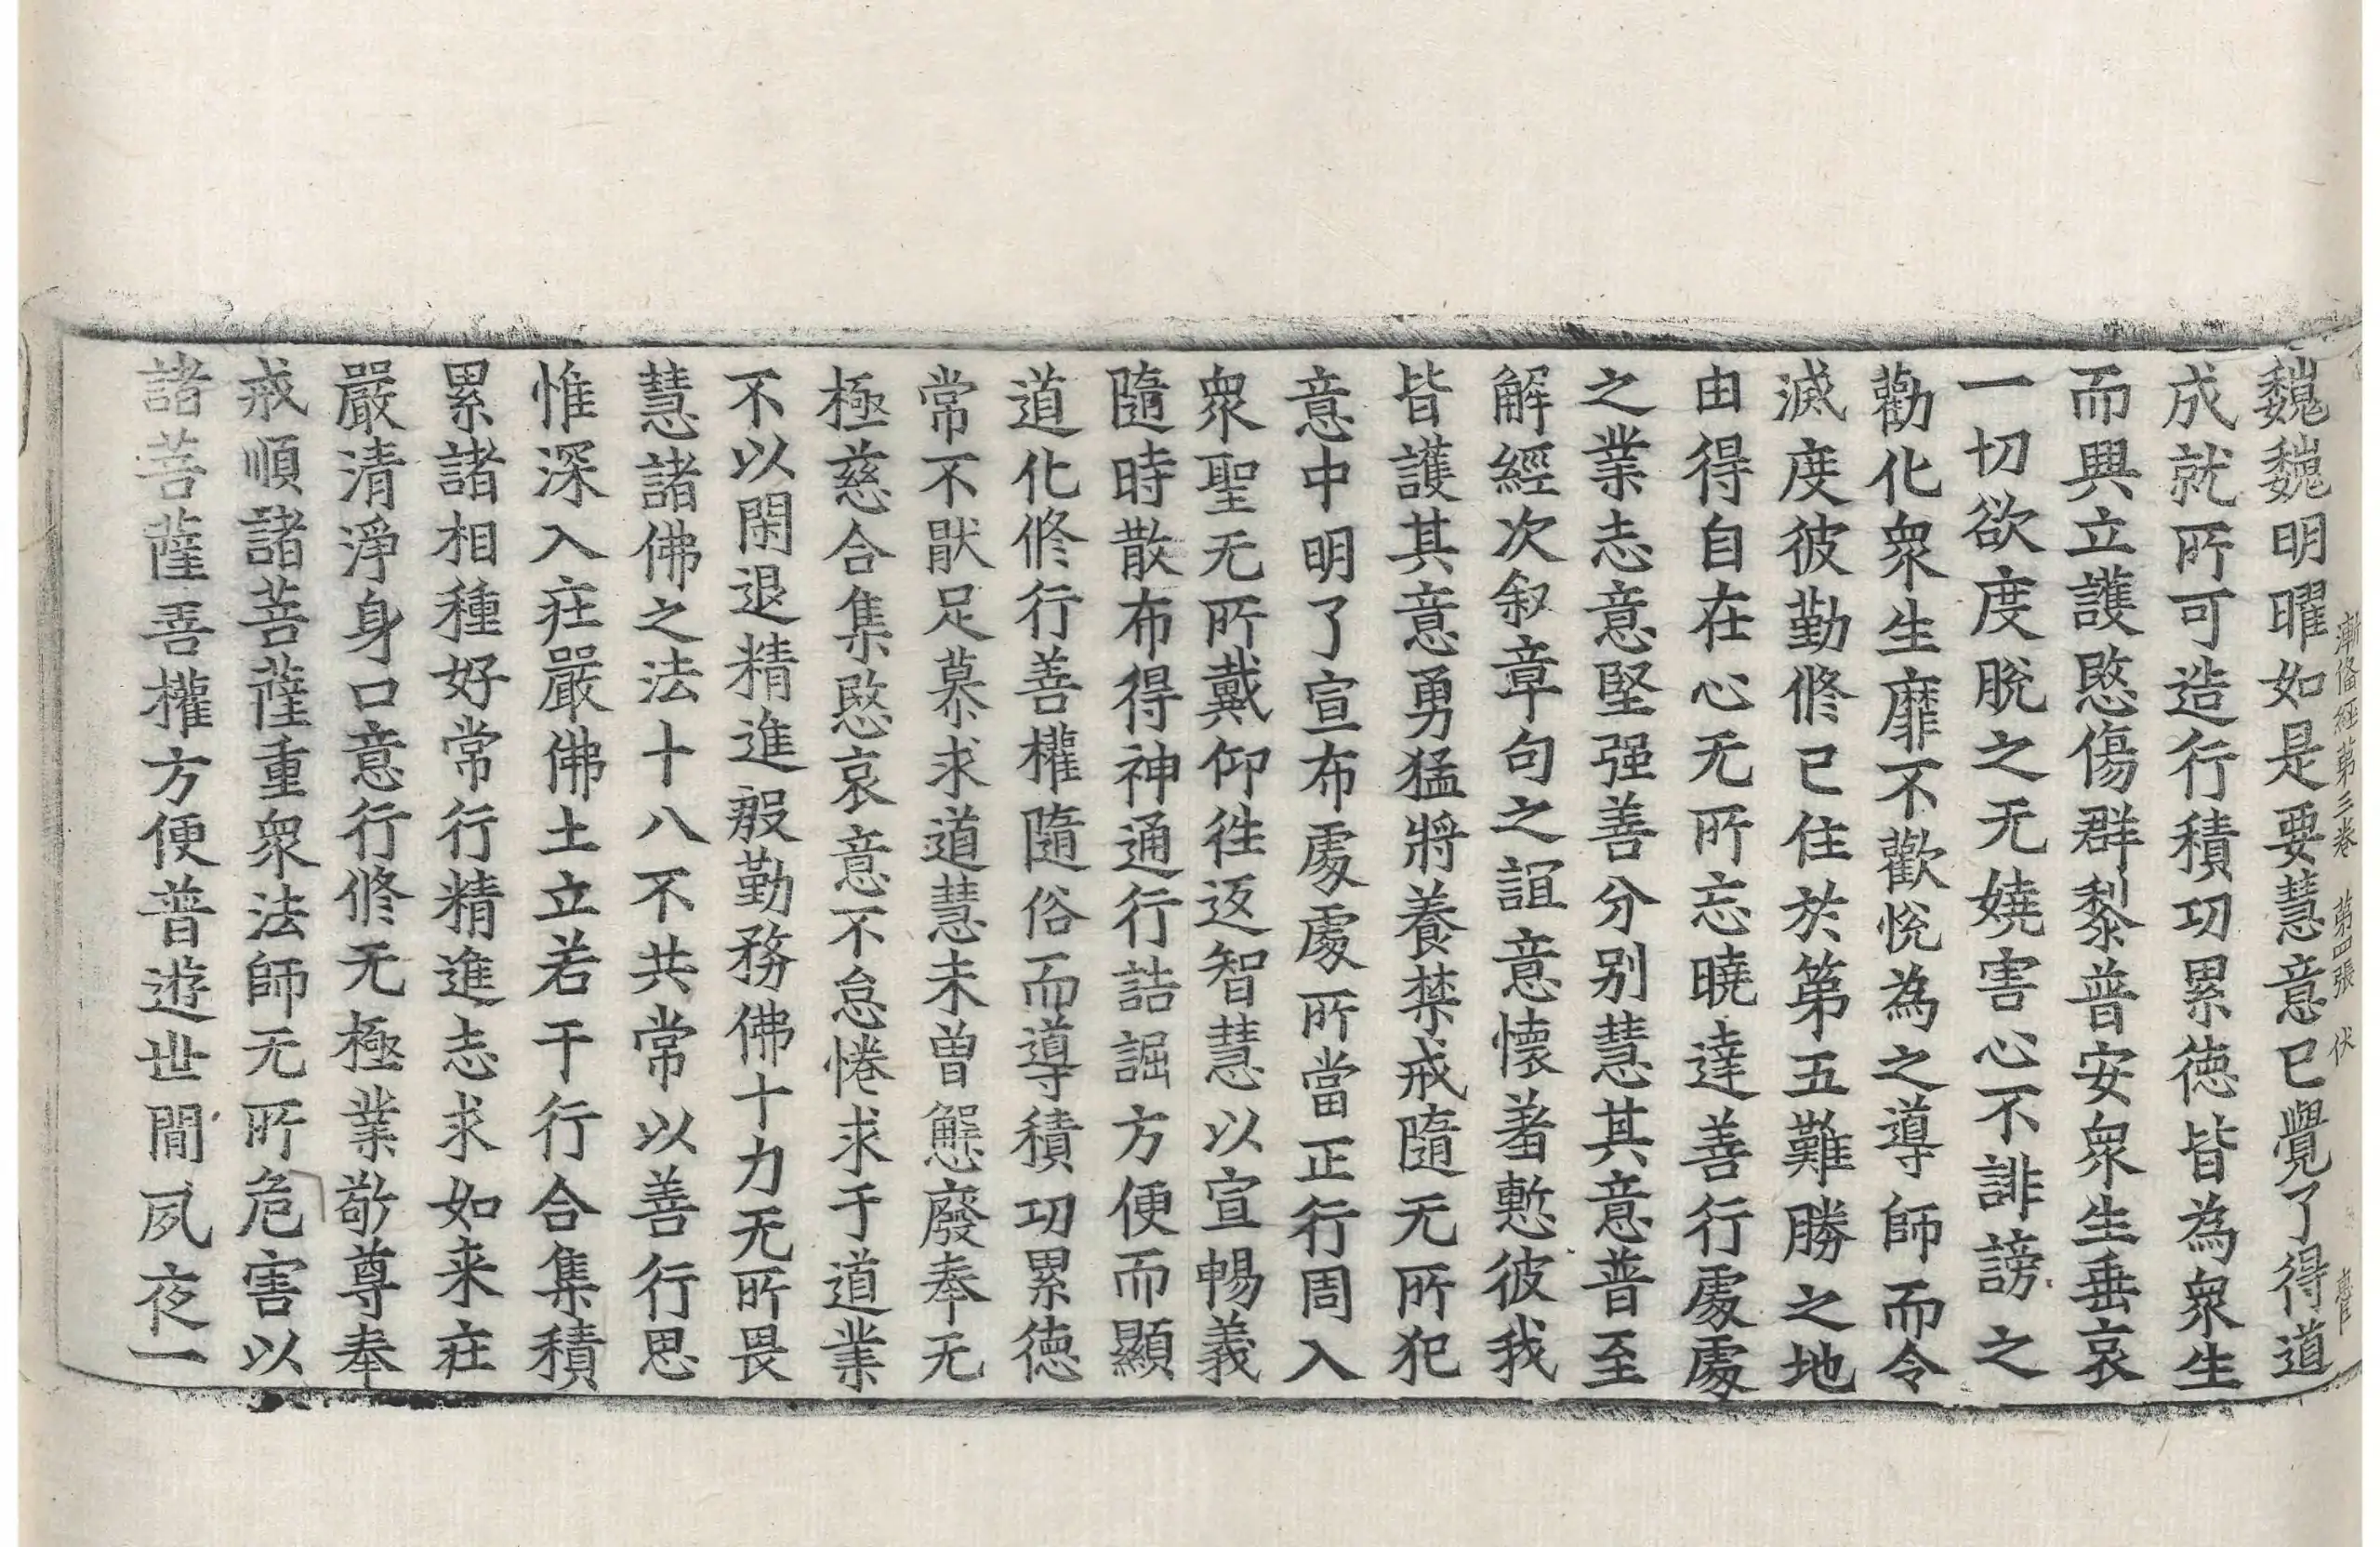 漸俻経第三卷　第四張　伏
巍巍明曜如是要慧意已覺了得道
成就所可造行積功累德皆為衆生
而興立護愍傷群黎普安衆生垂哀
一切欲度脫之无嬈害心不誹謗之
勸化衆生靡不歡悅為之導師而令
滅度彼勤修已住於第五難勝之地
由得自在心无所忘曉達善行處處
之業志意堅强善分別慧其意普至
解經次叙章句之誼意懷羞慙彼我
皆護其意勇猛將養禁戒隨无所犯
意中明了宣布處處所當正行周入
衆聖无所戴仰往返智慧以宣暢義
隨時散布得神通行詰詘方便而顯
道化修行善權隨俗而導積功累德
常不猒足慕求道慧未曾懈廢奉无
極慈合集愍哀意不怠惓求于道業
不以閑退精進殷勤務佛十力无所畏
慧諸佛之法十八不共常以善行思
惟深入莊嚴佛土立若干行合集積
累諸相種好常行精進志求如来莊
嚴清淨身口意行修无極業敬尊奉
戒順諸菩薩重衆法師无所危害以
諸菩薩善權方便普遊世間夙夜一